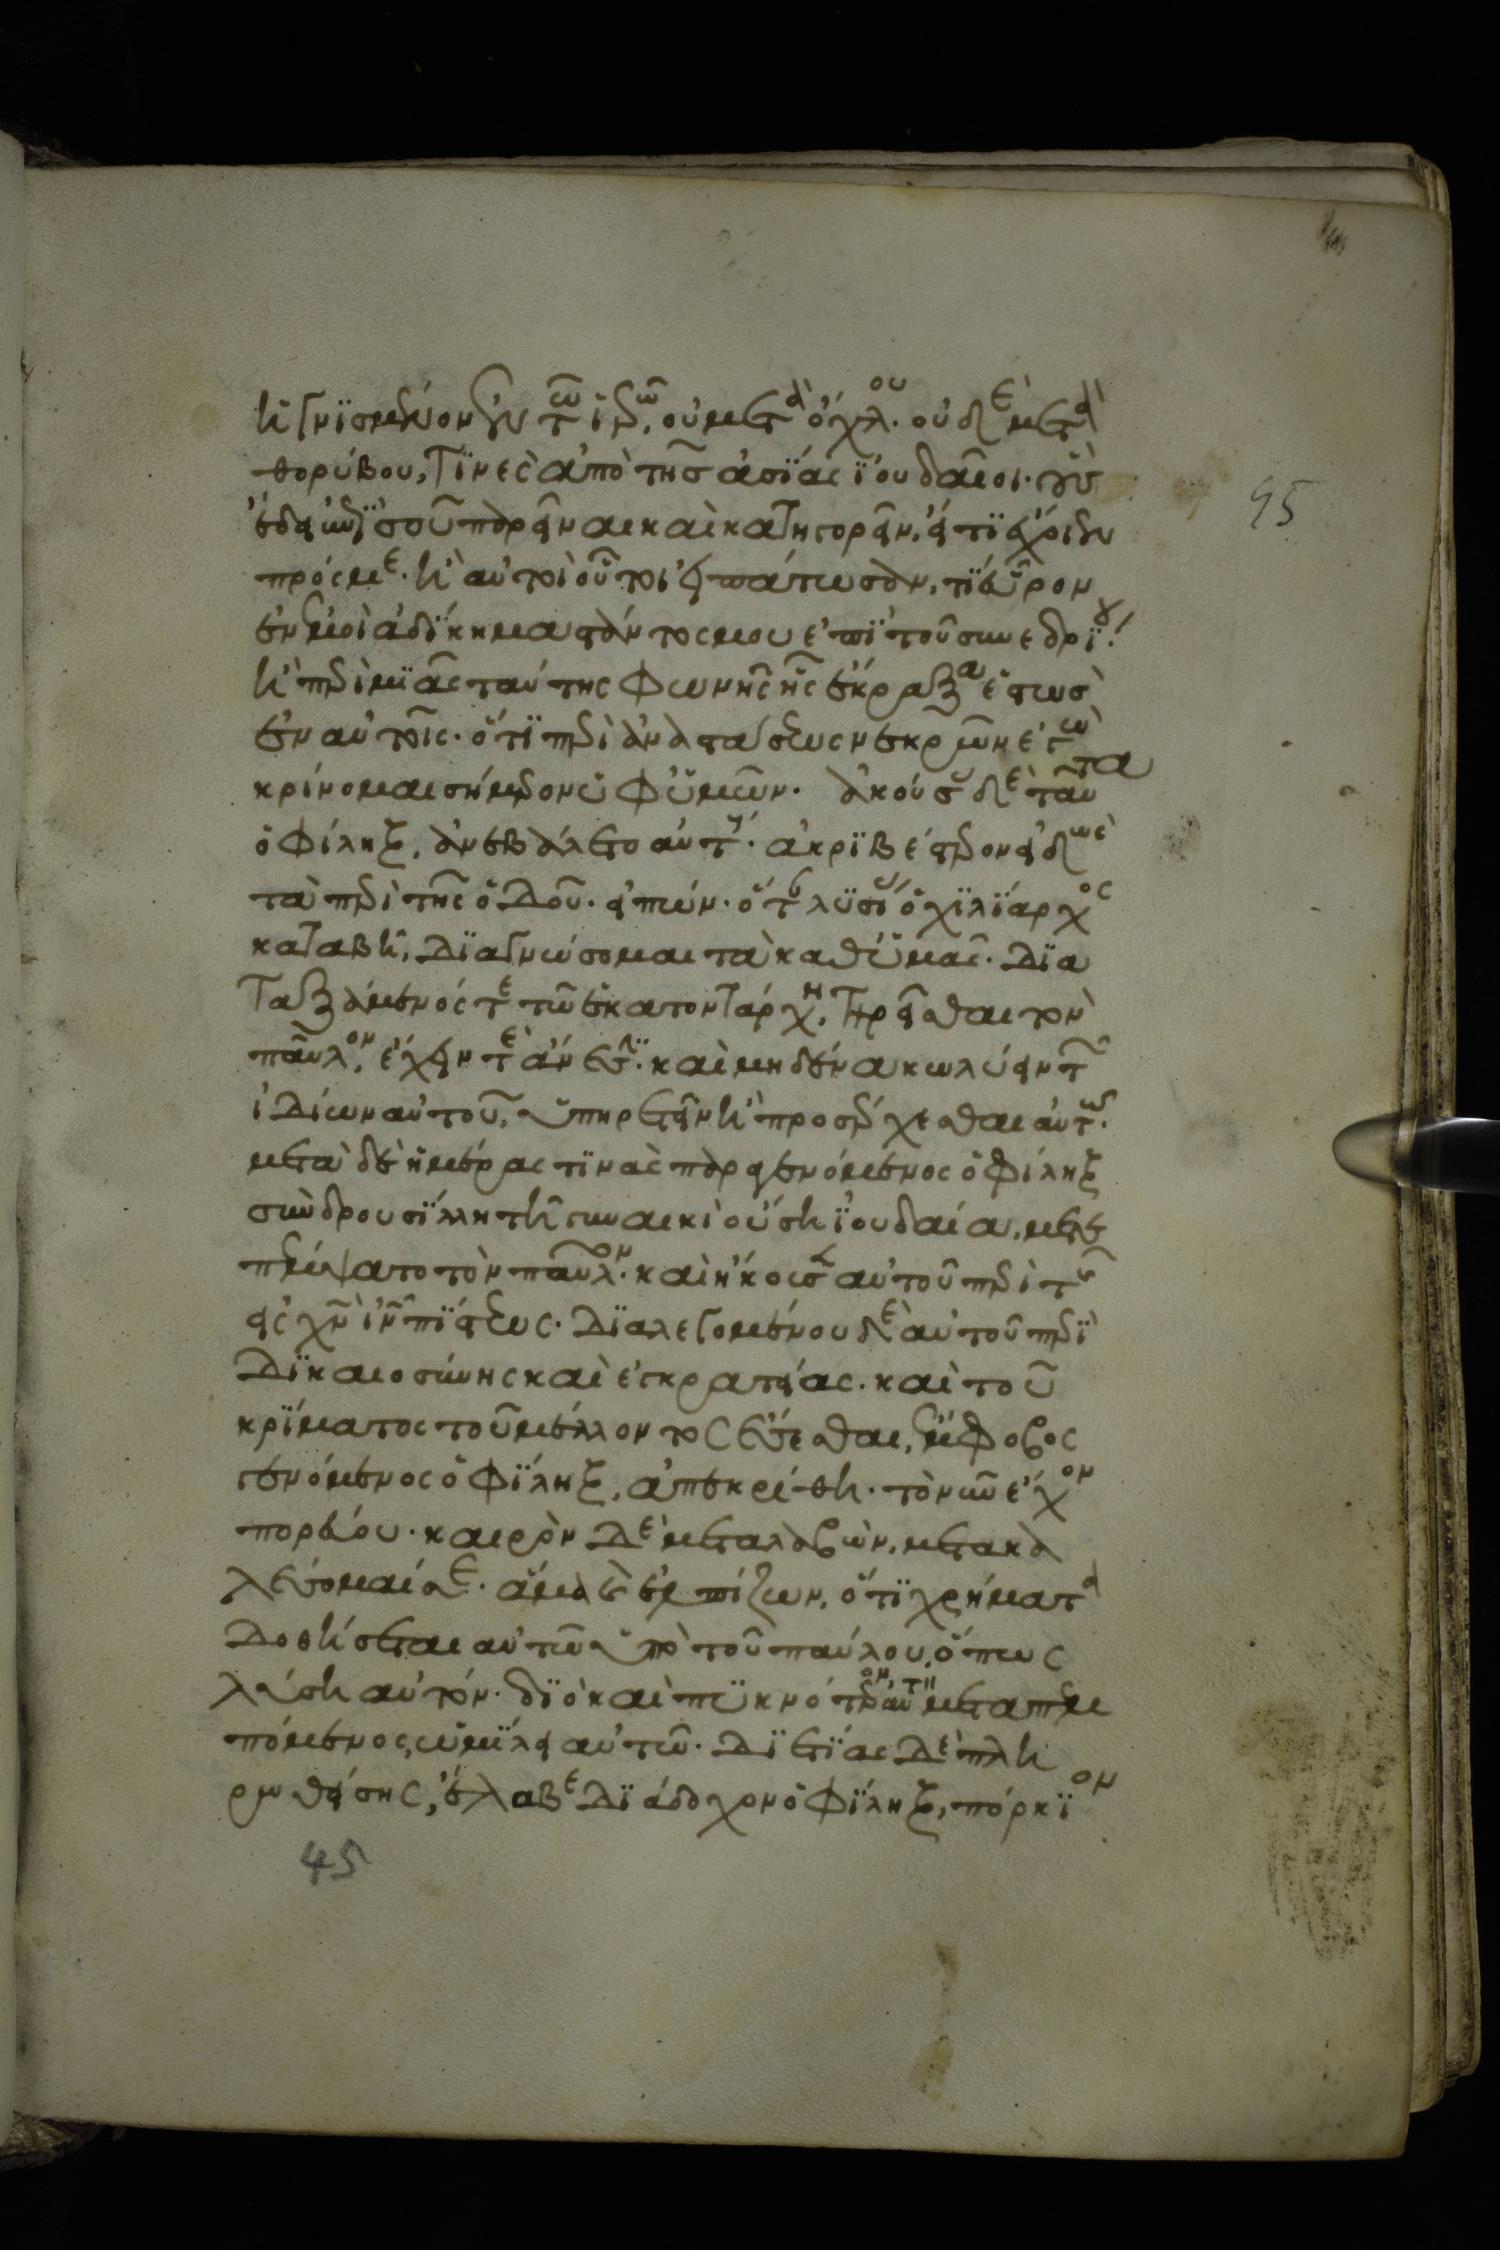 ἡγνισμένον ἐν τῶ ἱερῶ, οὐ μετὰ ὄχλου. οὐδὲ μετὰ
θορύβου, τινὲς ἀπὸ τῆς ἀσίας ἰουδαῖοι. οὓς
ἔδει ἐπὶ σοῦ παρεῖναι καὶ κατηγορεῖν, εἴ τι ἔχοιεν
πρός με. ἢ αὐτοὶ οὗτοι εἰπάτωσαν, τί εὗρον
ἐν ἐμοὶ ἀδίκημα στάντος μου ἐπὶ τοῦ συνεδρίου.
ἢ περὶ μιᾶς ταύτης φωνῆς ἧς ἔκραξα ἑστὼς
ἐν αὐτοῖς. ὅτι περὶ ἀναστάσεως νεκρῶν ἐγὼ
κρίνομαι σήμερον ὑφ ὑμῶν. ἀκούσας δὲ ταῦτα
ὁ φίληξ, ἀνεβάλετο αὐτούς. ἀκριβέστερον εἰδὼς
τὰ περὶ τῆς ὁδοῦ. εἰπών. ὅταν λυσίας ὁ χιλίαρχος
καταβῆ, διαγνώσομαι τὰ καθ ὑμᾶς. δια
ταξάμενός τε τῶ ἑκατοντάρχη, τηρεῖσθαι τὸν
παῦλον, ἔχειν τὲ ἄνεσιν. καὶ μηδένα κωλύειν τῶν
ἰδίων αὐτοῦ, ὑπηρετεῖν ἢ προσέρχεσθαι αὐτῶ.
μετὰ δὲ ἡμέρας τινὰς παραγενόμενος ὁ φίληξ
σὺν δρουσίλλη τῆ γυναικὶ οὔση ἰουδαία, μετε
πέμψατο τὸν παῦλον. καὶ ἤκουσεν αὐτοῦ περὶ τῆς
εἰς χν ιν πίστεως. διαλεγομένου δὲ αὐτοῦ περὶ
δικαιοσύνης καὶ ἐγκρατείας. καὶ τοῦ
κρίματος τοῦ μέλλοντος ἔσεσθαι, ἔμφοβος
γενόμενος ὁ φίληξ, ἀπεκρίθη. τὸ νῦν ἔχον
πορεύου. καιρὸν δὲ μεταλαβὼν, μετακα
λέσομαί σε. ἅμα δὲ ἐλπίζων, ὅτι χρήματα
δοθήσεται αὐτῶ ὑπὸ τοῦ παύλου, ὅπως
λύση αὐτόν. διὸ καὶ πυκνότερον αὐτὸν μεταπεμ
πόμενος, ὡμίλει αὐτῶ. διετίας δὲ πλη
ρωθείσης, ἔλαβε διάδοχον ὁ φίληξ, πόρκιον
95
45